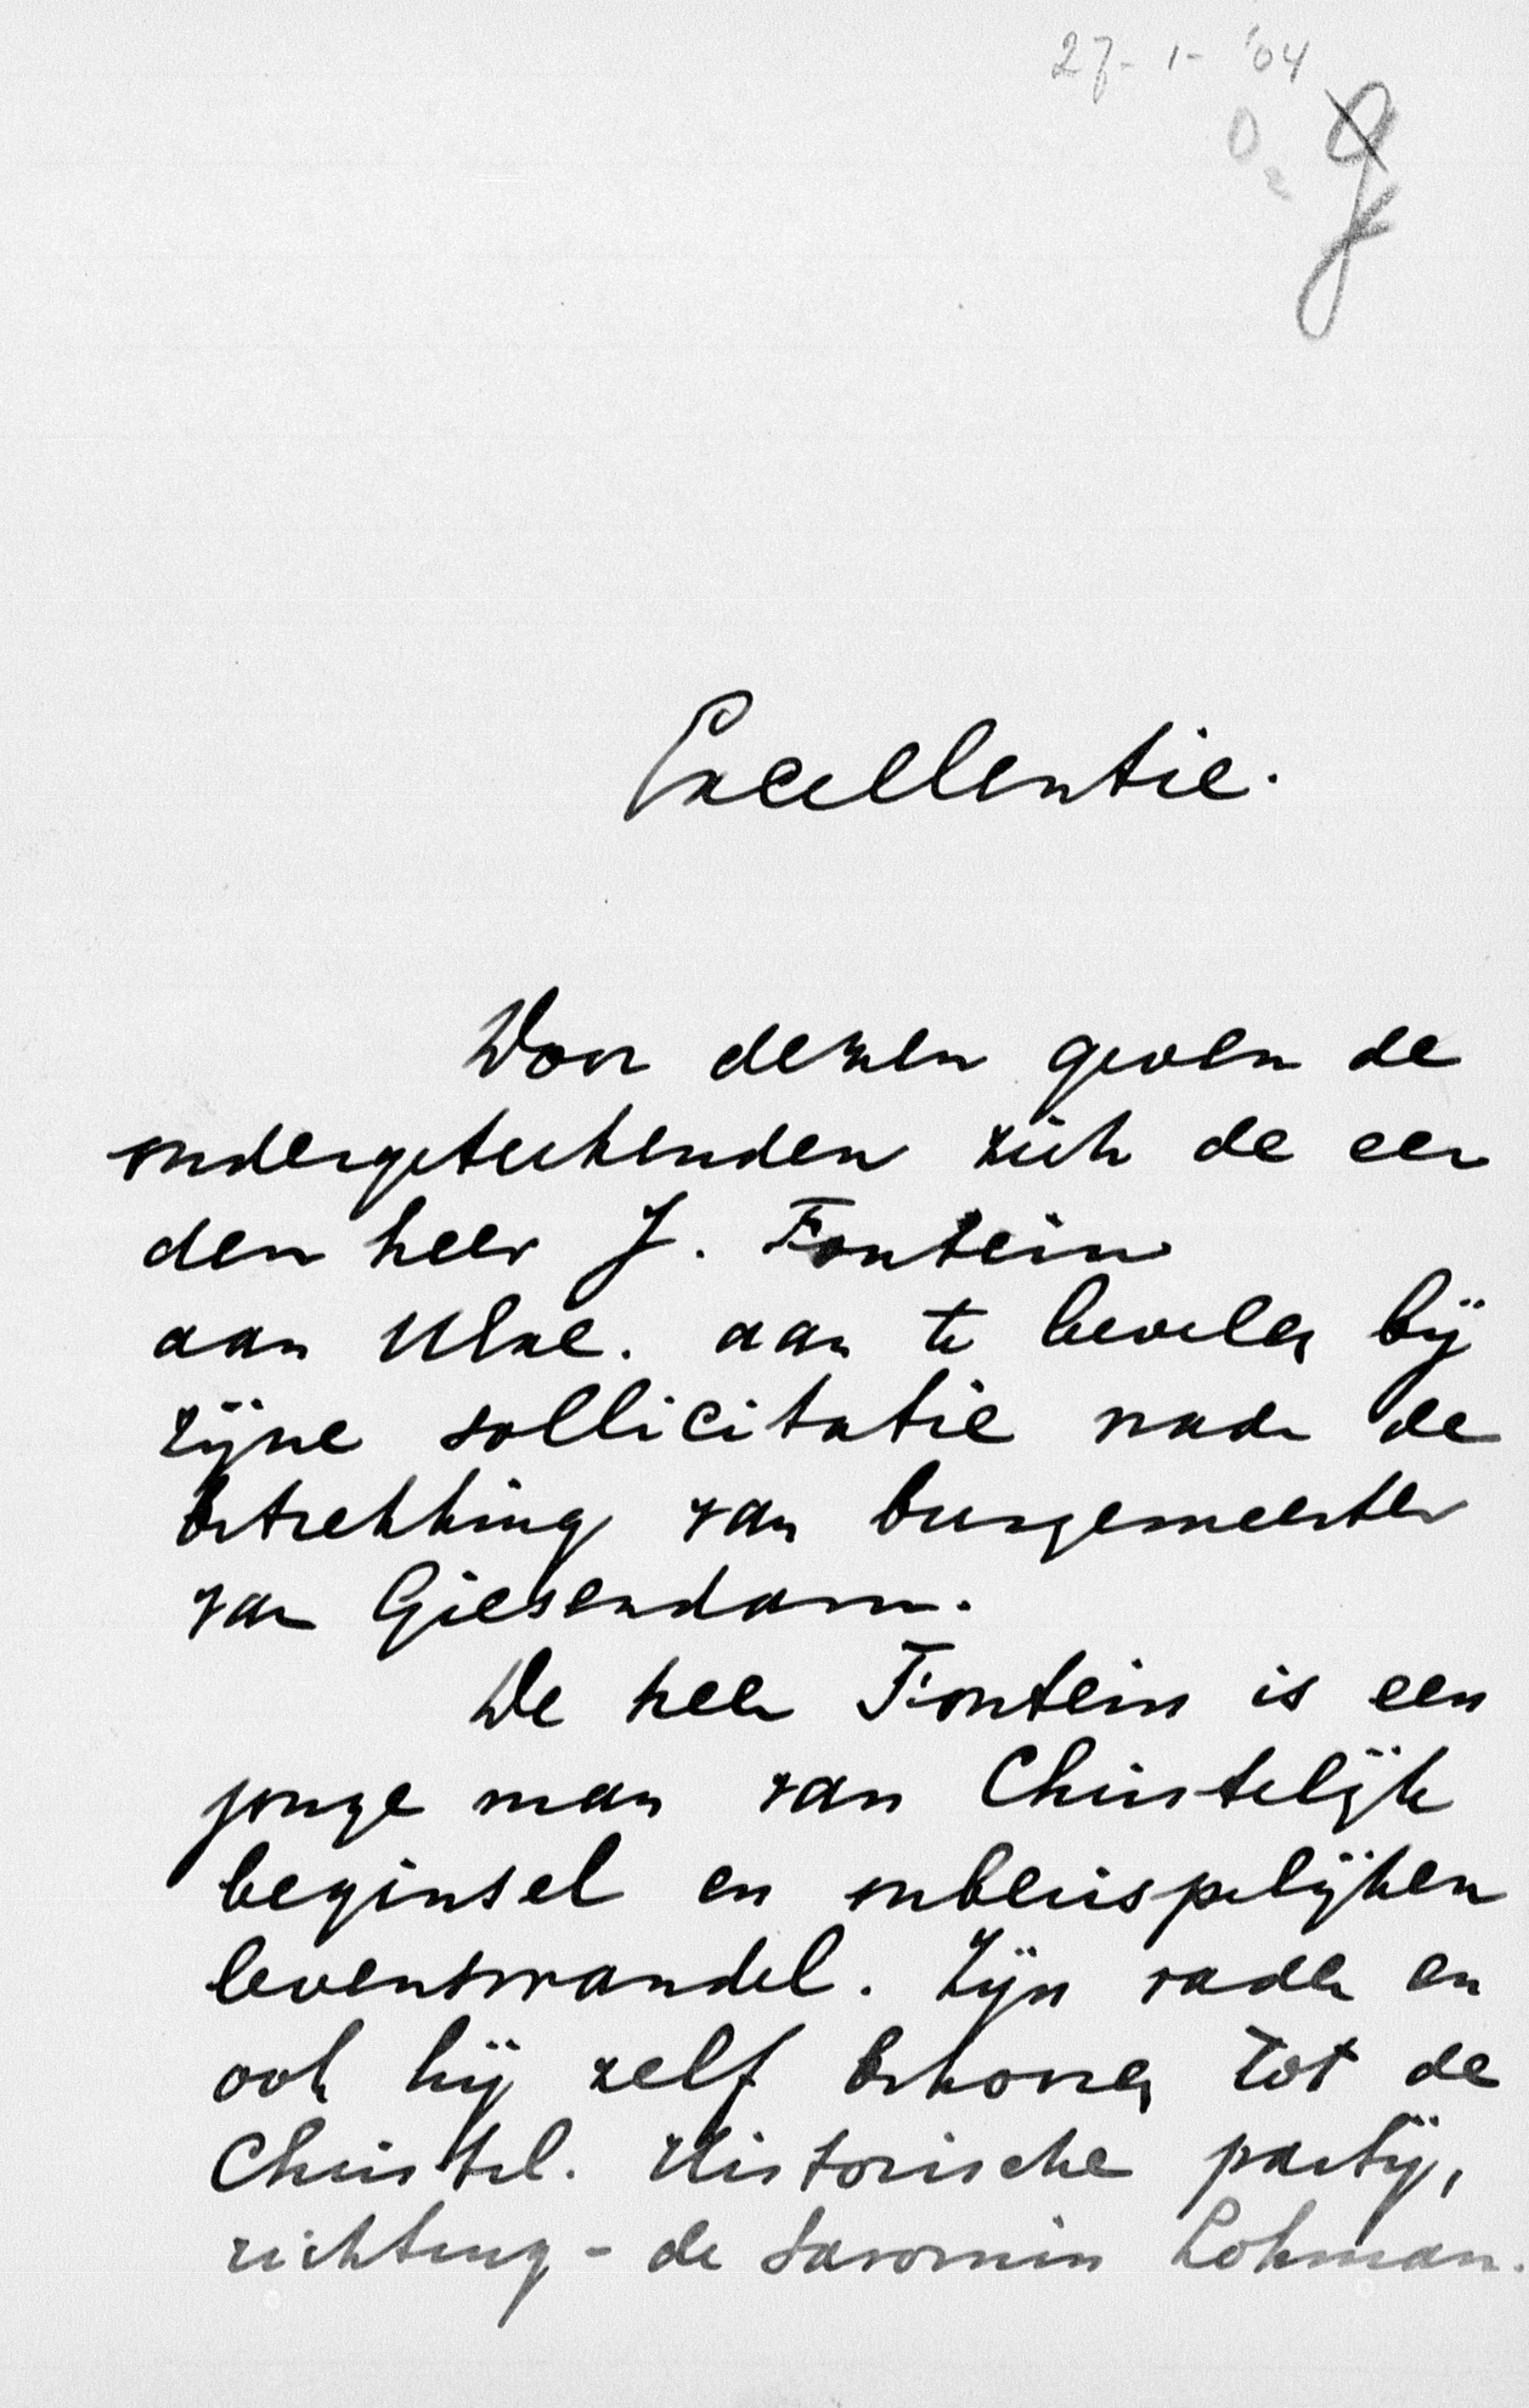 27-1-'04
Excellentie.
Door dezen geven de
ondergeteekenden zich de eer
den heer J. Fontein
aan UExc. aan te bevelen bij
zijne sollicitatie naar de
betrekking van burgemeester
van Giesendam.
De heer Fontein is een
jonge man van Christelijk
beginsel en onberispelijken
levenswandel. Zijn vader en
ook hij zelf behooren tot de
Christel. Historische partij,
richting - de Savornin Lohman.